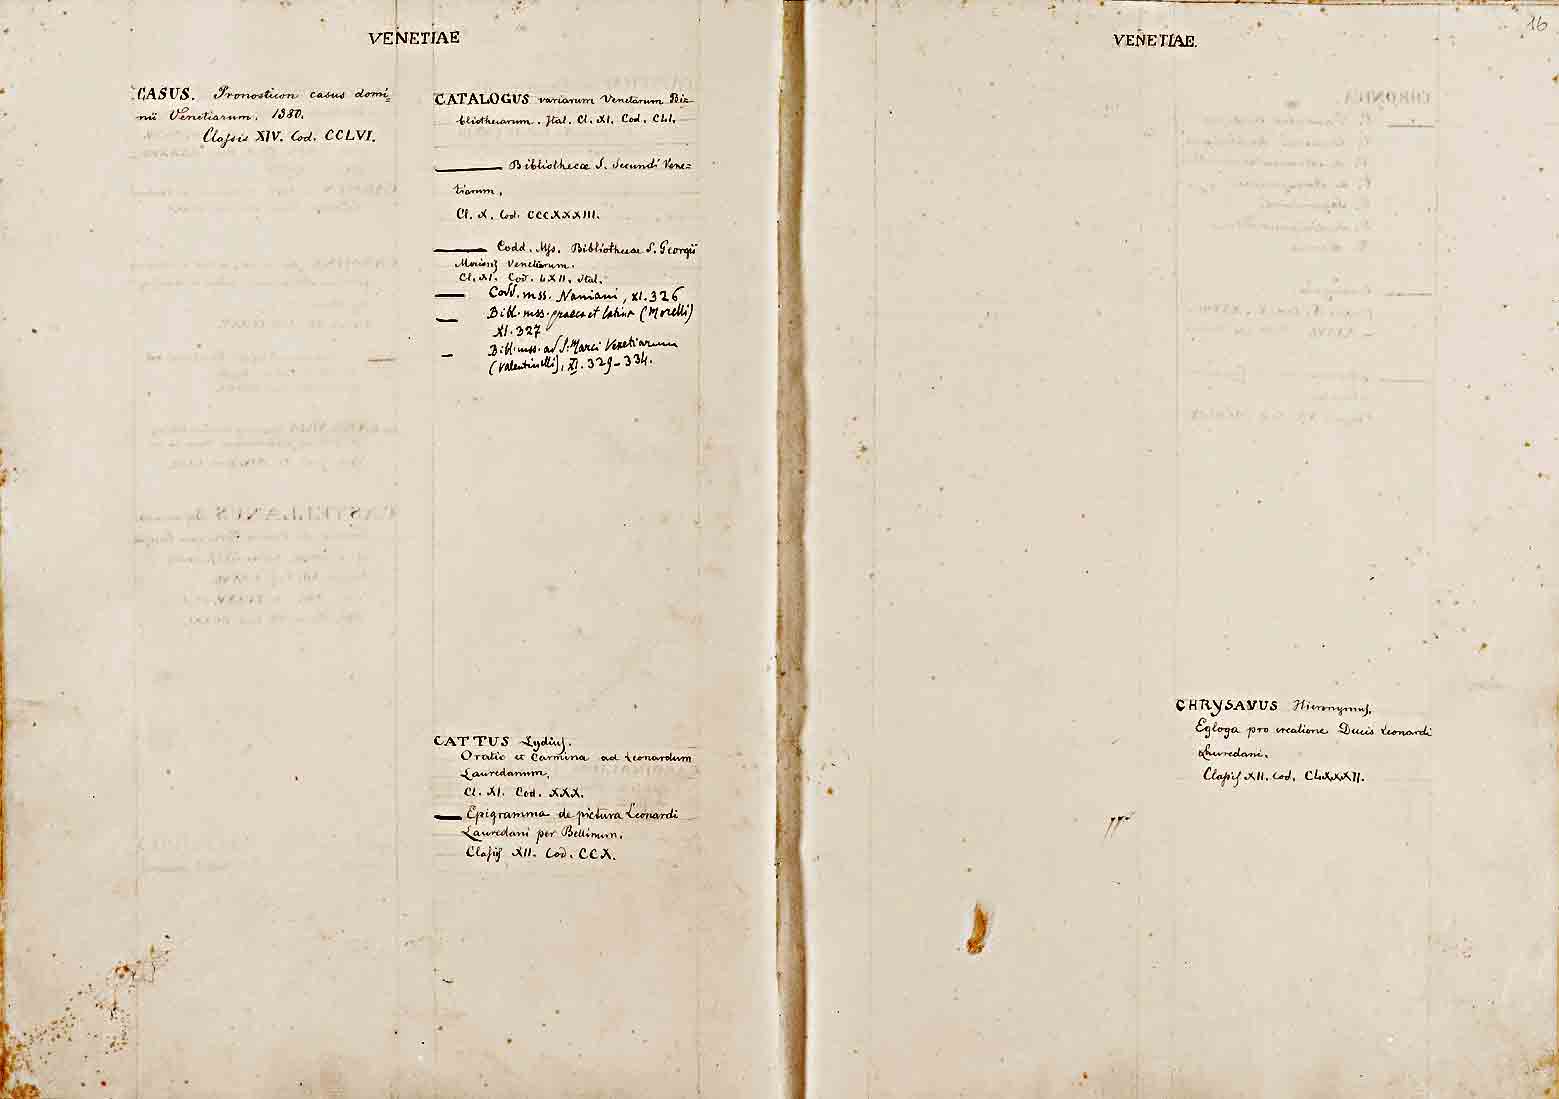 VENETIAE
CASUS. Pronosticon casus domi=
nii Venetiarum. 1380.
Classis XIV. Cod. CCLVI.
CATALOGUS variarum Venetarum Bi=
bliothecarum. Ital. Cl. XI. Cod. CLI.
Bibliothecae S. Secundi Vene=
tiarum.
Cl. X. Cod. CCCXXXIII.
Codd. Mss. Bibliothecae S. Georgii
Venetiarum.
Cl. XI. Cod. LXII. Ital.
Codd. mss. Naniani, XI. 326
Bibl. mss. graeca et latina (Morelli)
XI. 327
Bibl. mss. ad S. Marci Venetiarum
(Valentinelli), XI. 329-334.
CATTUS Lydius.
Oratio et Carmina ad Leonardum
Lauredanum.
Cl. XI. Cod. XXX.
Epigramma de pictura Leonardi
Lauredani per Bellinum.
Classis XII. Cod. CCX.
16
VENETIAE.
CHRYSAVUS Hieronymus.
Egloga pro creatione Ducis Leonardi
Lauredani.
Classis XII. Cod.